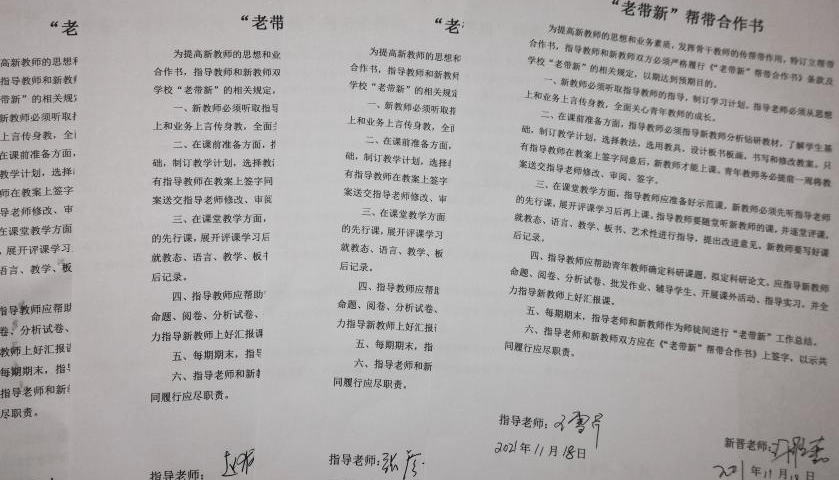 “老
高新教师的思想
指导教师和新教
老带新”的相关规
新教师必须听取
上言传身教，全
在课前准备方面，
教学计划，选择
师在教案上签字
导老师修改、审
在课堂教学方面
，展开评课学习
语言、教学、板
指导教师应帮助
卷、分析试卷、
教师上好汇报课
每期期末，指
指导老师和新
尽职责。
“老带
为提高新教师的思想和业
合作书，指导教师和新教师双
学校“老带新”的相关规定，
一、新教师必须听取指导
上和业务上言传身教，全面
二、在课前准备方面，指
础，制订教学计划，选择教
有指导教师在教案上签字同
案送交指导老师修改、审阅
三、在课堂教学方面，
的先行课，展开评课学习后
就教态、语言、教学、板书
后记录。
四、指导教师应帮助
命题、阅卷、分析试卷、批
力指导新教师上好汇报课
五、每期期末，指导
六、指导老师和新教
同履行应尽职责。
指导老师:
“老
为提高新教师的思想和
合作书，指导教师和新教师
学校“老带新”的相关规定
一、新教师必须听取指
上和业务上言传身教，全面
二、在课前准备方面，
础，制订教学计划，选择
有指导教师在教案上签字
案送交指导老师修改、审
三、在课堂教学方面，
的先行课，展开评课学习
就教态、语言、教学、板
后记录。
四、指导教师应帮助
命题、阅卷、分析试卷、
力指导新教师上好汇报
五、每期期末，指
六、指导老师和新
同履行应尽职责。
指导老师:张彦
“老带新”帮带合作书
为提高新教师的思想和业务素质，发挥骨干教师的传帮带作用，特订立帮带
合作书，指导教师和新教师双方必须严格履行《“老带新”帮带合作书》条款及
学校“老带新”的相关规定，以期达到预期目的。
一、新教师必须听取指导教师的指导，制订学习计划。指导老师必须从思想
上和业务上言传身教，全面关心青年教师的成长。
二、在课前准备方面，指导教师必须指导新教师分析钻研教材，了解学生基
础，制订教学计划，选择教法，选用教具，设计板书板画，书写和修改教案。只
有指导教师在教案上签字同意后，新教师才能上课。青年教师务必提前一周将教
案送交指导老师修改、审阅、签字。
三、在课堂教学方面，指导教师应准备好示范课，新教师必须先听指导老师
的先行课，展开评课学习后再上课，指导教师要随堂听新教师的课，并逐堂评课，
就教态、语言、教学、板书、艺术性进行指导，提出改进意见。新教师要写好课
后记录。
四、指导教师应帮助青年教师确定科研课题，拟定科研论文。应指导新教师
命题、阅卷、分析试卷、批发作业、辅导学生、开展课外活动、指导实习。并全
力指导新教师上好汇报课。
五、每期期末，指导老师和新教师作为师徒间进行“老带新”工作总结。
六、指导老师和新教师双方应在《“老带新”帮带合作书》上签字，以示共
同履行应尽职责。
指导老师:
2021年11月18日
新晋老师:
2021年11月18日